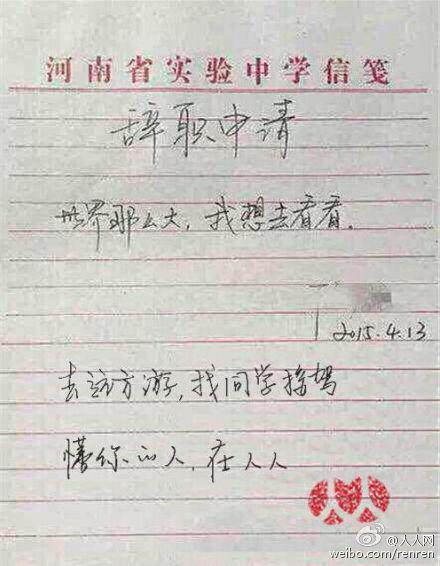 河南省实验中学信笺
辞职申请
世界那么大，我想去看看.
2015.4.13
去远方游，找同学接驾
懂你的人，在人人
人人网
weibo.com/renren